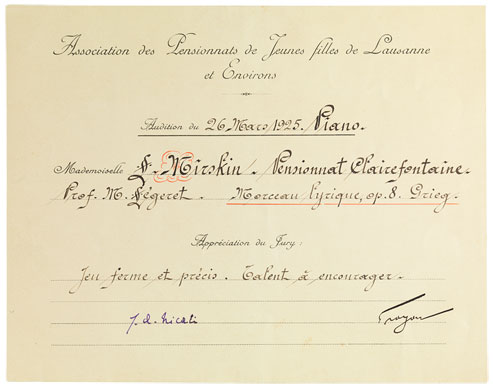 Association des Pensionnats de Jeunes filles de Lausanne
et Environs
Audition du 26 Mars 1925. Piano.
Mademoiselle F. Mirskin. Pensionnat Clairefontaine.
Prof. M. Légeret. Morceau lyrique, op. 8. Grieg.
Appréciation du Jury:
Jeu ferme et précis. Talent à encourager.
Troyon